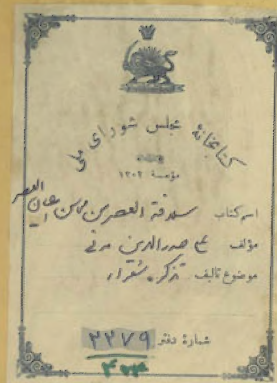 کتابخانهٔ مجلس شورای ملی
مؤسسهٔ ۱۳۰۲
اسم کتاب سلافة العصر من محاسن اعیان العصر
مؤلف صدرالدین مدنی
موضوع تالیف تذکره شعراء
شمارهٔ دفتر ۲۲۷۹